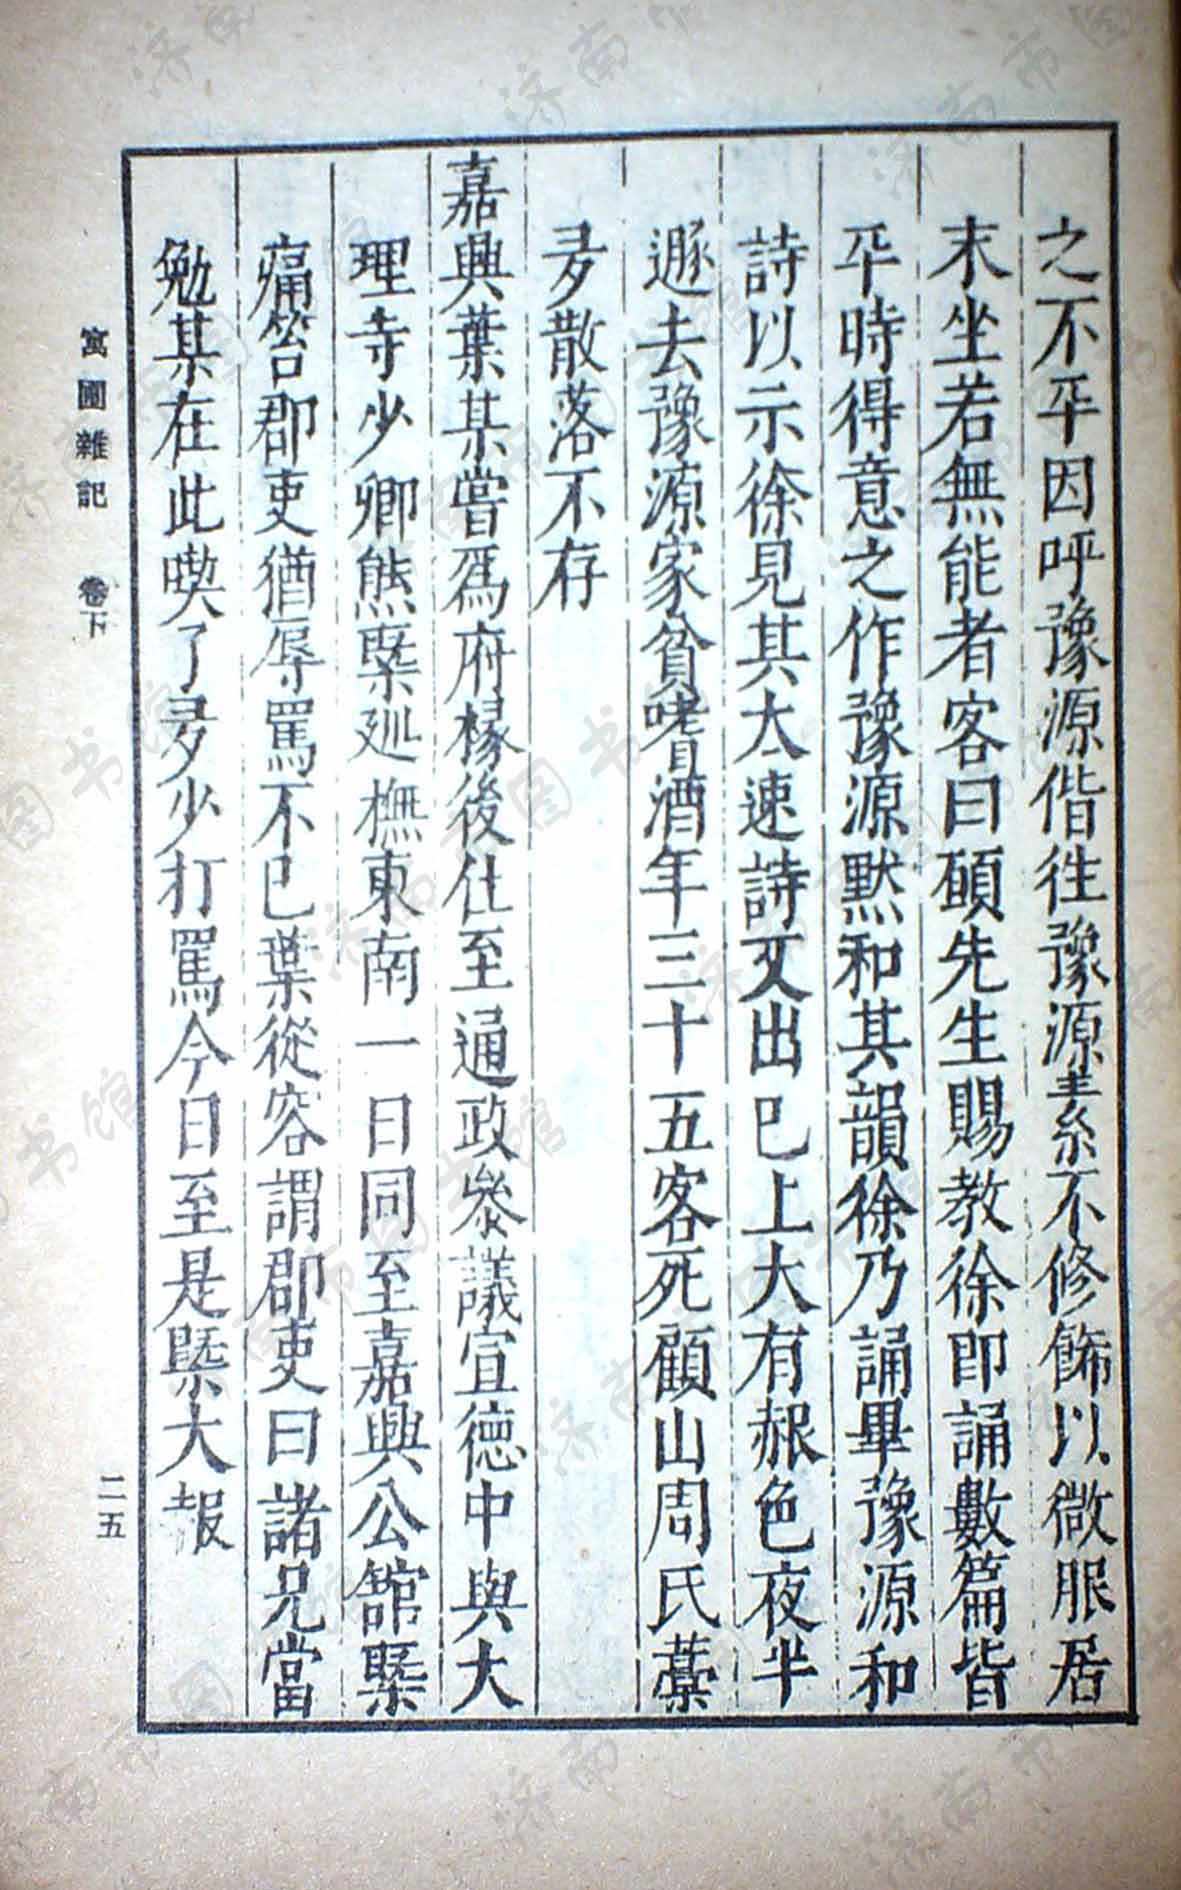 之不平因呼豫源偕往豫源素不修飾以微服居
末坐若無能者客曰碩先生賜教徐即誦數篇皆
平時得意之作豫源默和其韻徐乃誦畢豫源和
詩以示徐見其大速詩又出已上大有赧色夜半
遯去豫源家貧嗜酒年三十五客死顧山周氏藁
多散落不存
嘉興葉某嘗爲府椽後仕至通政叅議宣德中與大
理寺少卿熊槩廵撫東南一日同至嘉興公舘槩
痛笞郡吏猶辱罵不已葉從容謂郡吏曰諸兄當
勉某在此喫了多少打罵今日至是槩大報
寓圃雜記 卷下
二五
济南市图书馆